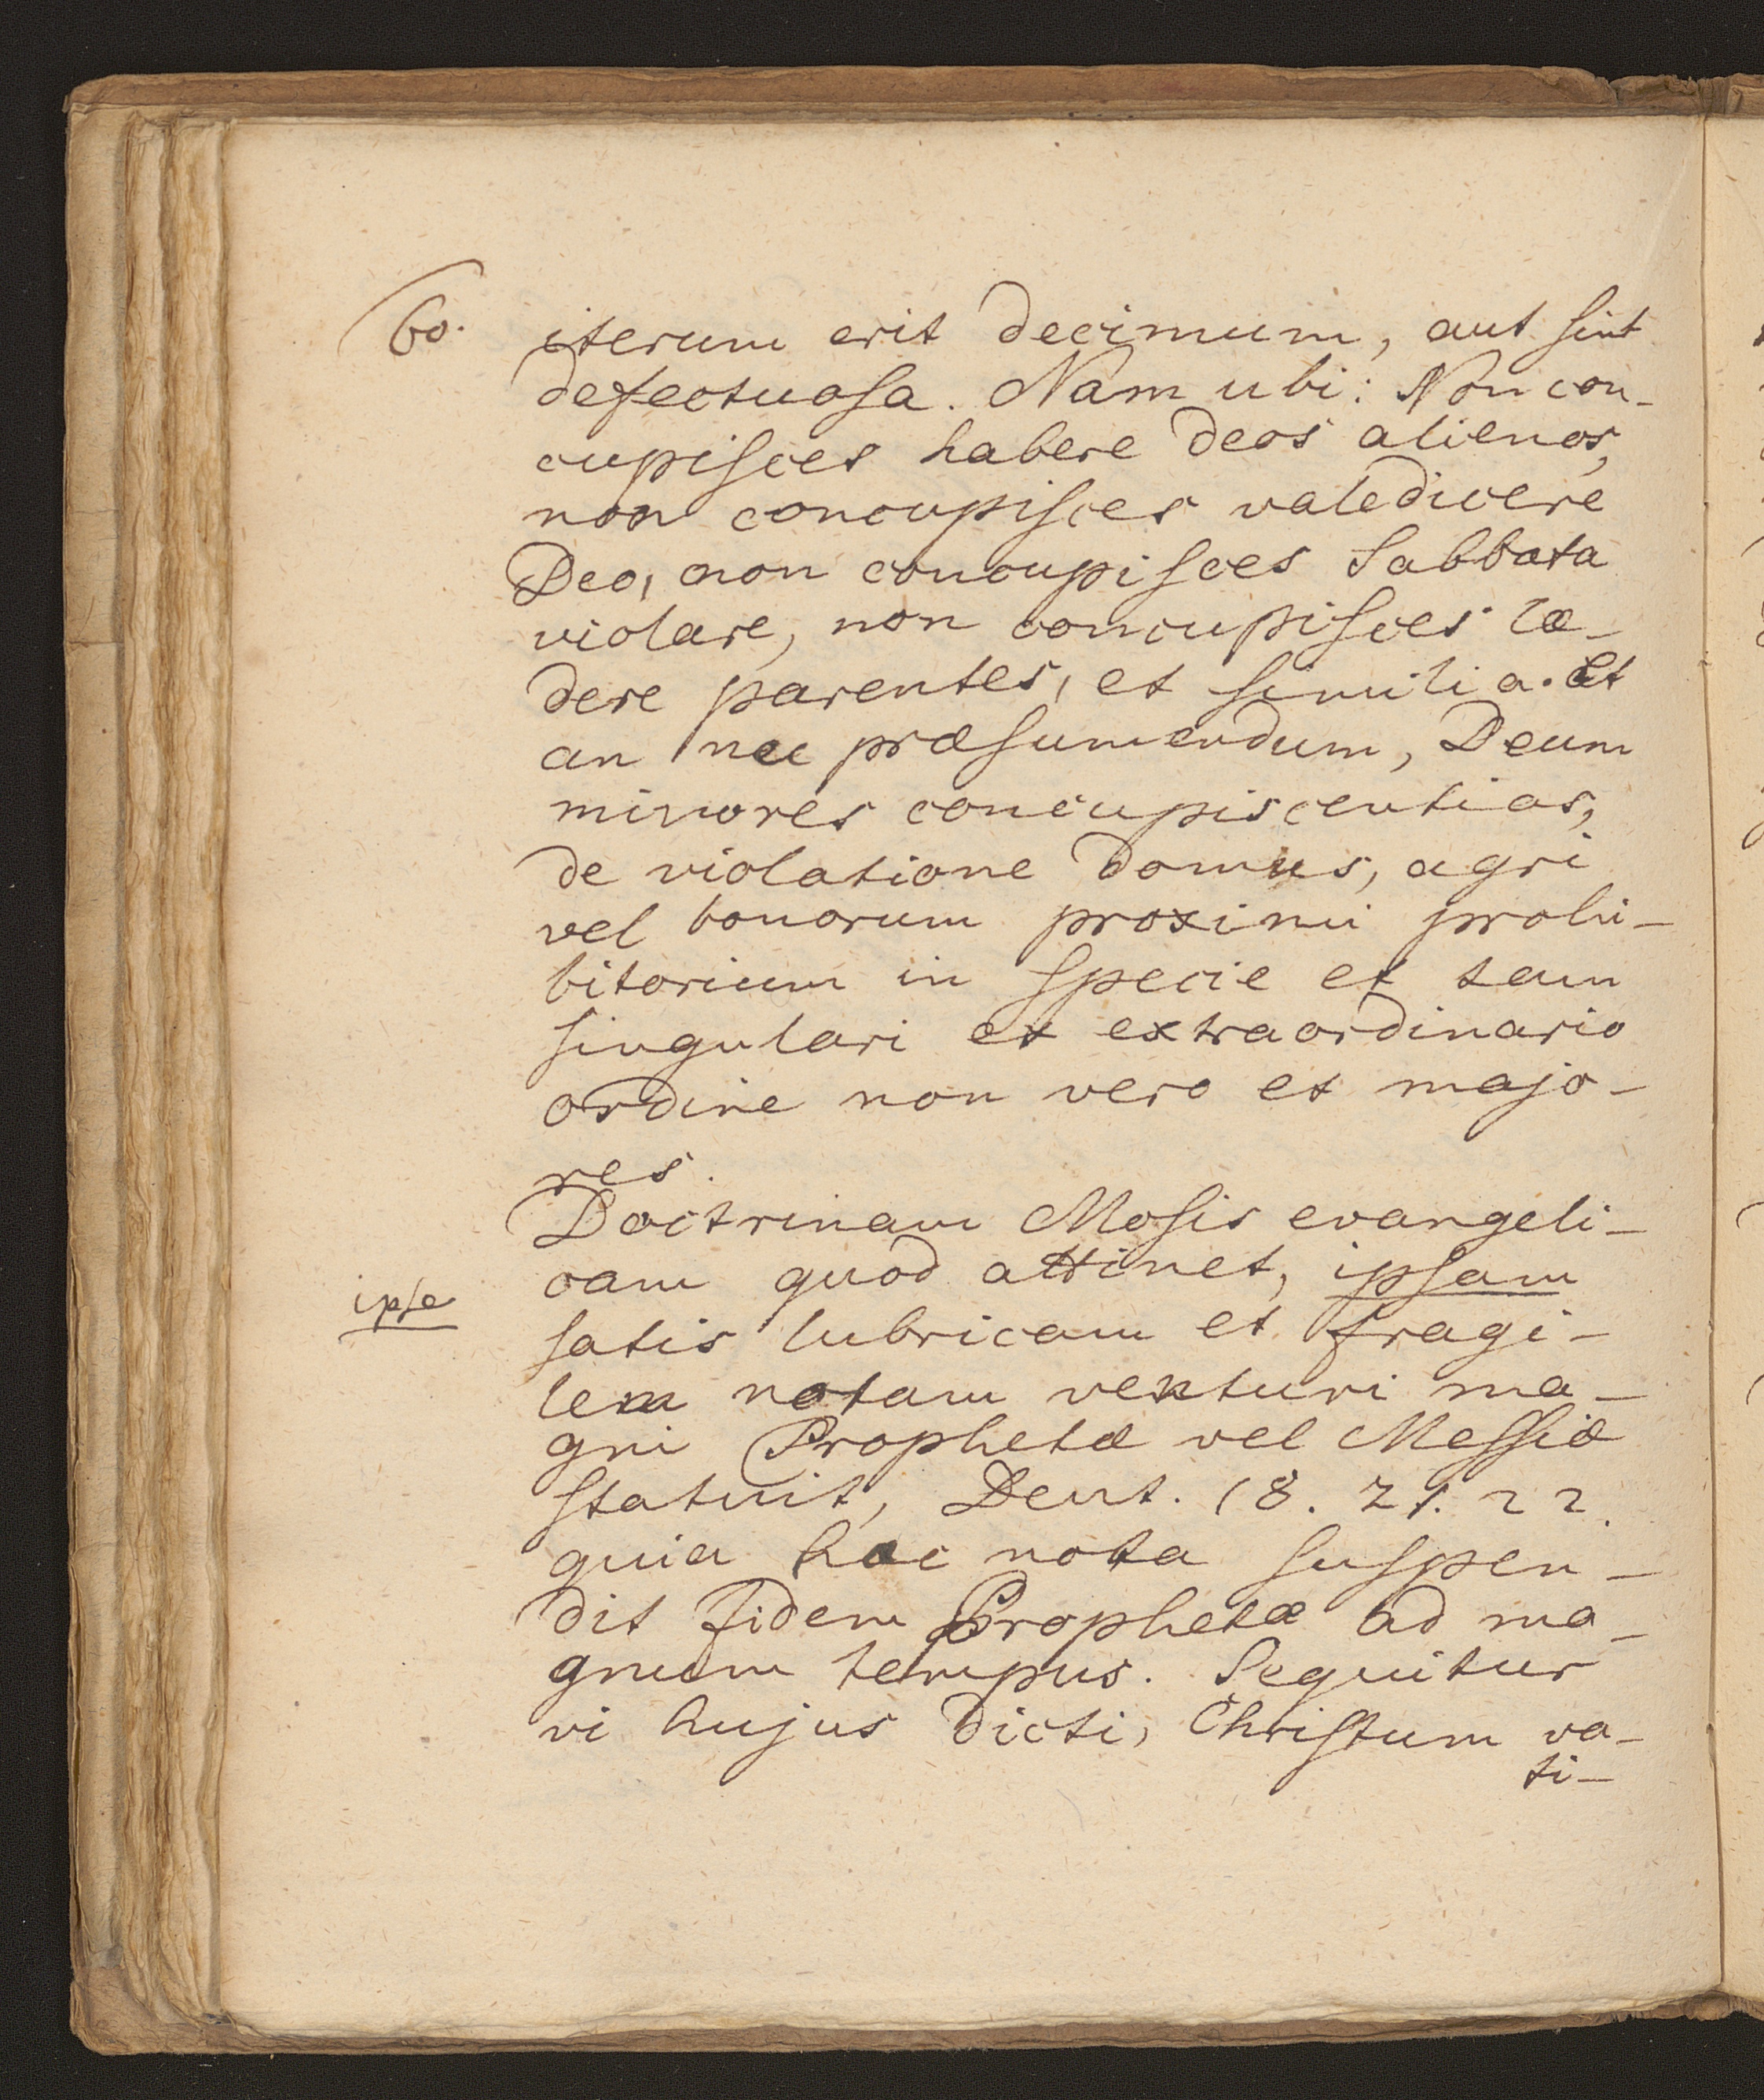 60.
iterum erit decimum, aut sint
defectuosa. Nam ubi: Non con-
cupisces habere deos alienos,
non concupisces valedicere
Deo, non concupisces Sabbata
violare, non concupisces læ-
dere parentes, et similia. Et
an nec præsumendum, Deum
minores concupiscentias,
de violatione domus, agri
vel bonorum proximi prohi-
bitorium in specie et tam
singulari et extraordinario
ordine non vero et majo-
res.
Doctrinam Mosis evangeli-
cam quod attinet, ipsam
ipse
satis lubricam et fragi-
lem notam venturi ma-
gni Prophetæ vel Messiæ
statuit, Deut. 18. 21. 22.
quia hæc nota suspen-
dit fidem Prophetæ ad ma-
gnum tempus. Sequitur
vi hujus dicti, Christum va-
ti-